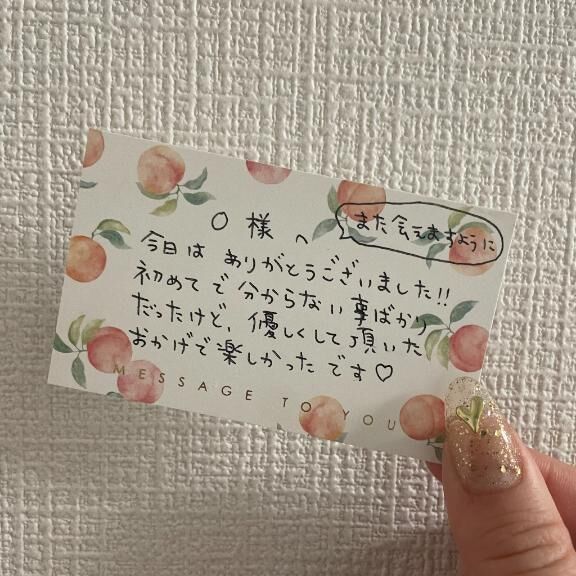 ○ 様へ
また会えますように
今日は ありがとうございました!!
初めてで分からない事ばかり
だったけど、優しくして頂いた
おかげで楽しかったです♡
MESSAGE TO YOU